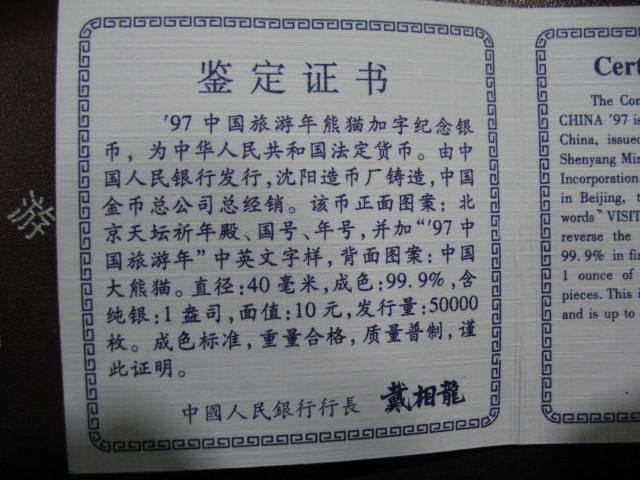 鉴定证书
'97中国旅游年熊猫加字纪念银
币，为中华人民共和国法定货币。由中
国人民银行发行，沈阳造币厂铸造，中国
金币总公司总经销。该币正面图案：北
京天坛祈年殿、国号、年号，并加“'97中
国旅游年”中英文字样，背面图案：中国
大熊猫。直径：40毫米，成色：99.9%，含
纯银：1盎司，面值：10元，发行量：50000
枚。成色标准，重量合格，质量普制，谨
此证明。
中國人民銀行行長 戴相龍
游
Cert
The Com
CHINA '97 is
China, issued
Shenyang Min
Incorporation.
in Beijing, t
words"VISIT
reverse the
99.9% in fin
1 ounce of
pieces. This i
and is up to